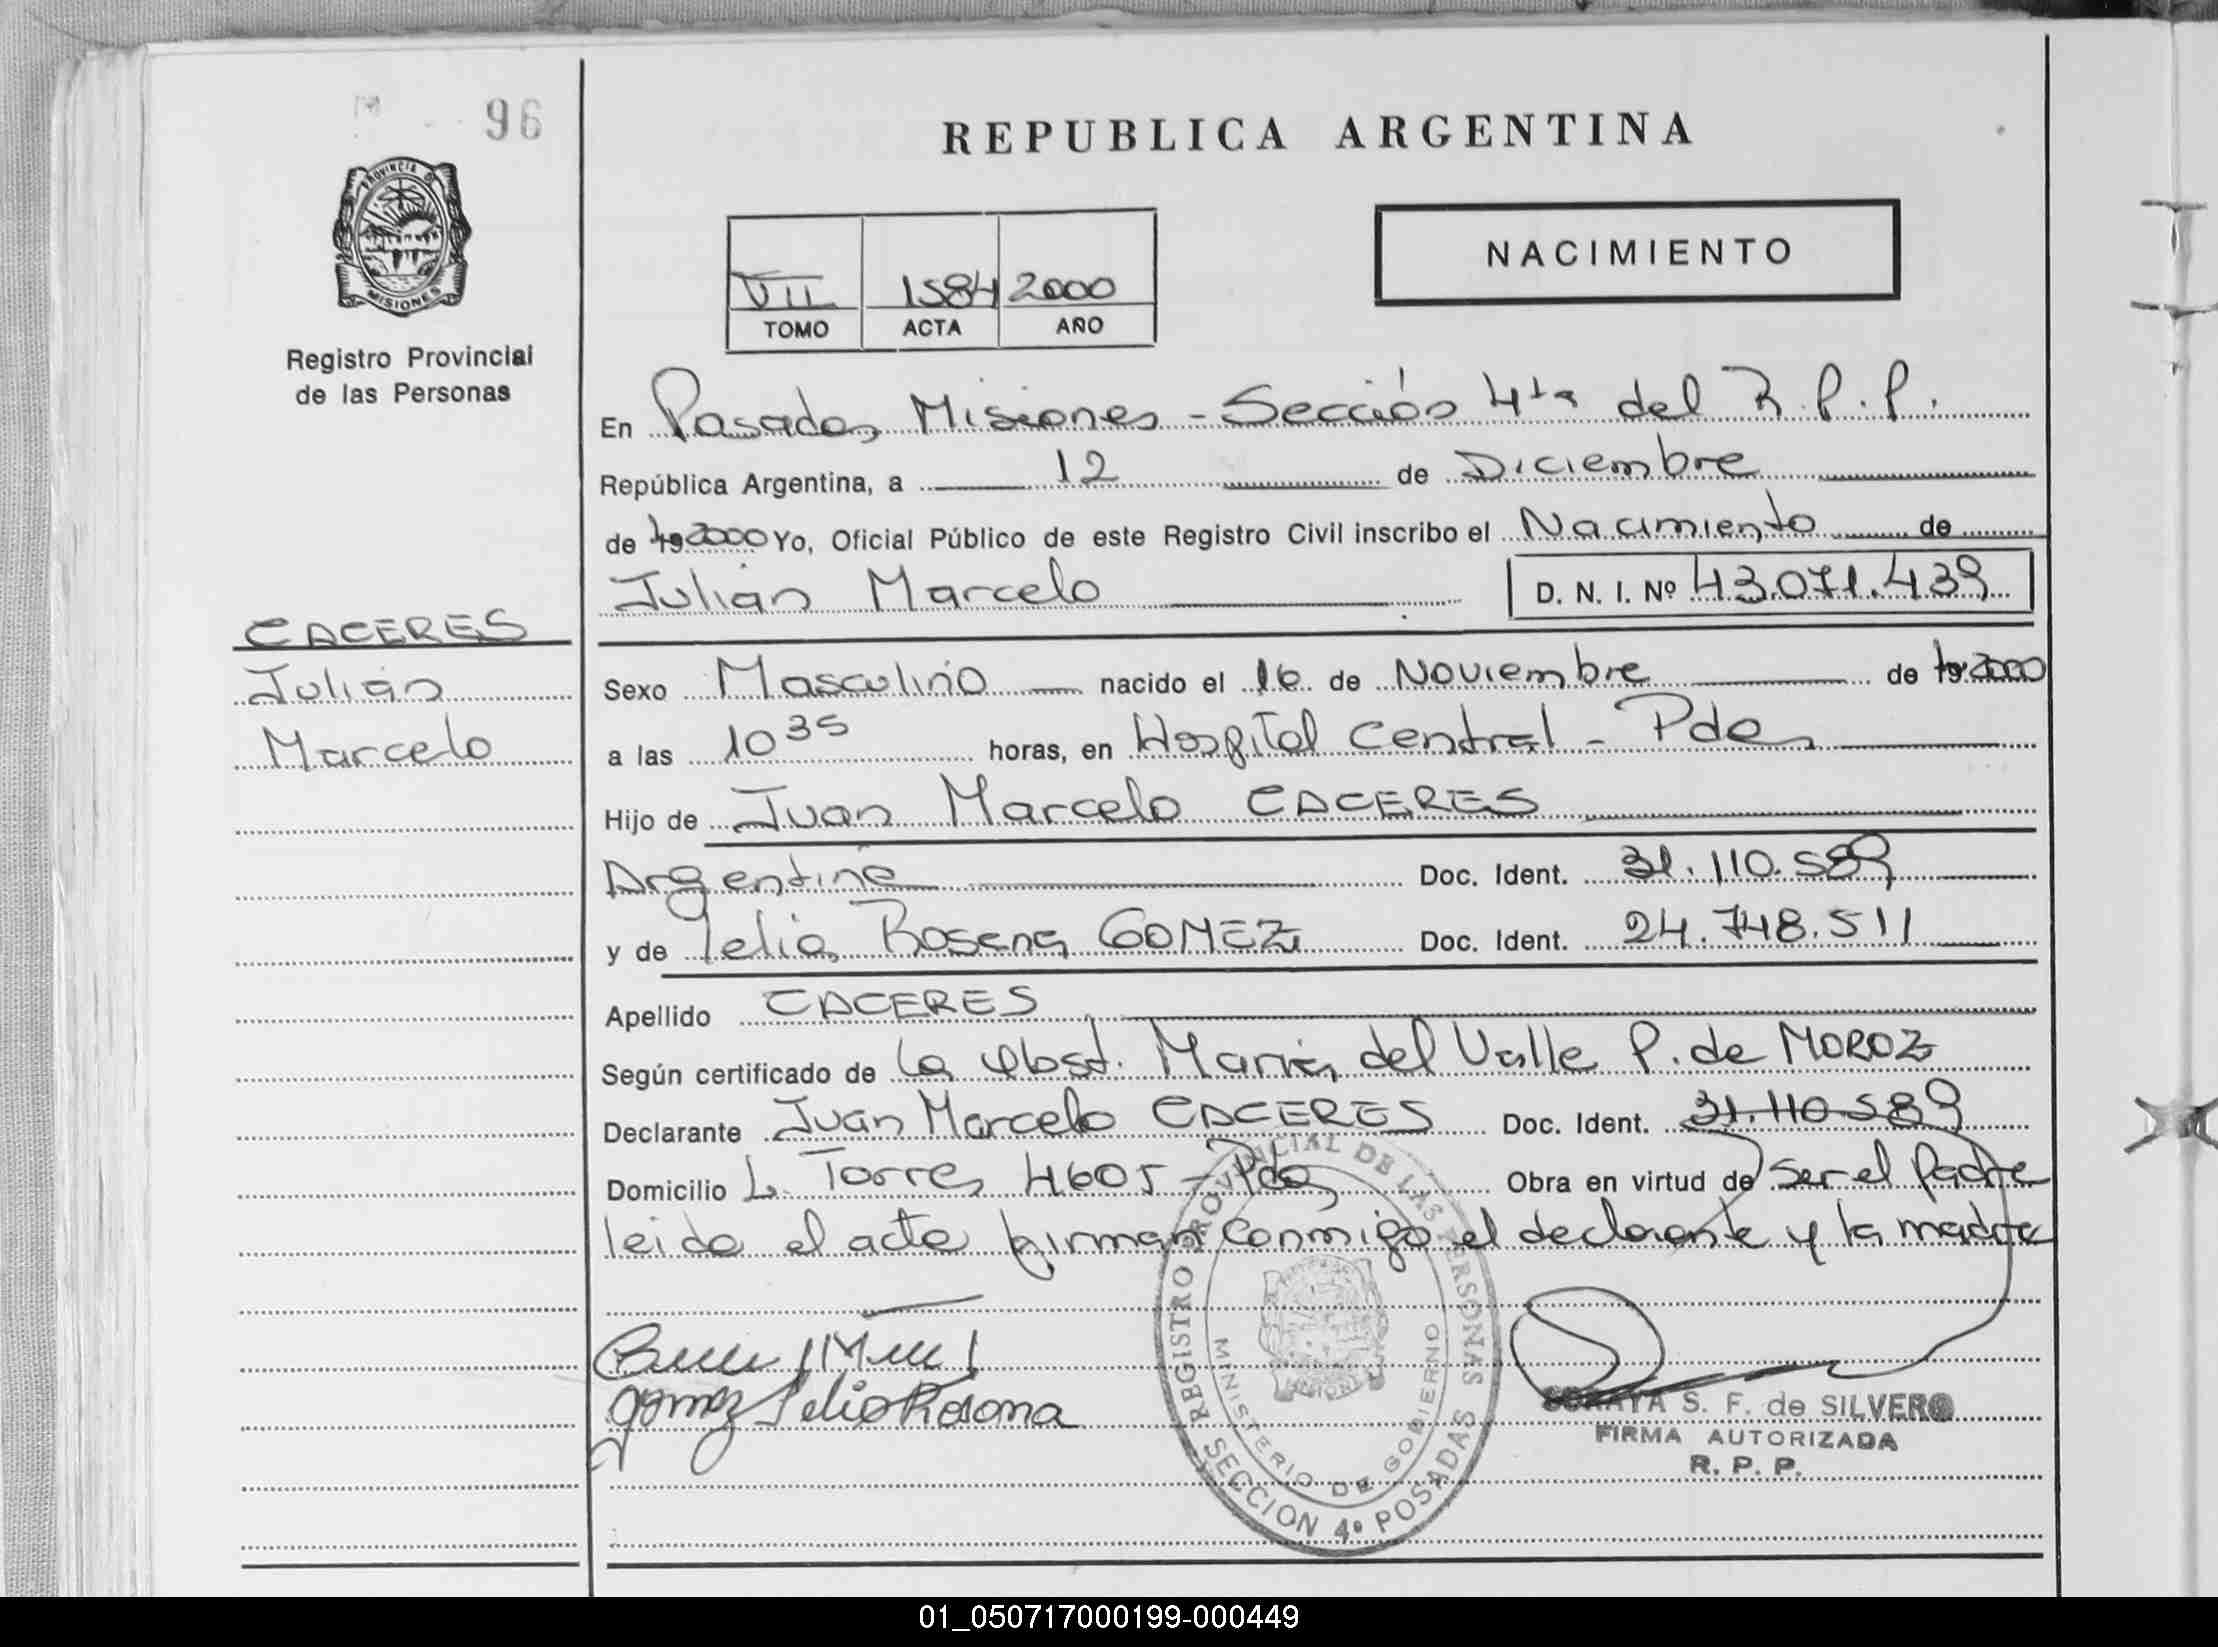 96
PROVINCIA DE
MISIONES
Registro Provincial
de las Personas
REPUBLICA ARGENTINA
NACIMIENTO
VII 1584 2000
TOMO ACTA AÑO
En Posadas Misiones - Sección 4ta del R.P.P.
República Argentina, a 12 de Diciembre
de 19 2000 Yo, Oficial Público de este Registro Civil inscribo el Nacimiento de
Julián Marcelo D. N. I. Nº 43.071.439
CACERES
Julián
Marcelo
Sexo Masculino nacido el 16 de Noviembre de 19 2000
a las 10 35 horas, en Hospital Central - Pdas
Hijo de Juan Marcelo CACERES
Argentina Doc. Ident. 31.110.589
y de Lelia Rosana GOMEZ Doc. Ident. 24.748.511
Apellido CACERES
Según certificado de la Obst. María del Valle P. de MOROZ
Declarante Juan Marcelo CACERES Doc. Ident. 31.110.589
Domicilio L. Torres 4605 - Pdas Obra en virtud de ser el padre
leida el acta firman conmigo el declarante y la madre
Gomez Lelia Rosana
REGISTRO PROVINCIAL DE LAS PERSONAS
MINISTERIO DE GOBIERNO
SECCION 4º POSADAS
SORAYA S. F. de SILVERO
FIRMA AUTORIZADA
R. P. P.
01_050717000199-000449